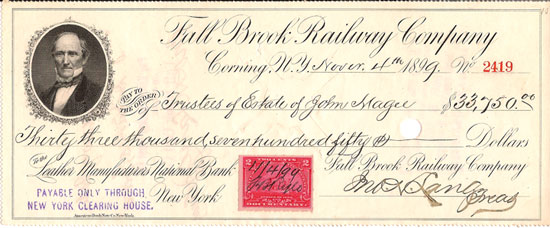 Fall Brook Railway Company
Corning, N.Y. Nover. 4th 1899. No 2419
PAY TO THE ORDER of Trustees of Estate of John Magee $33,750.00
Thirty three thousand, seven hundred fifty Dollars
To the Leather Manufacturers National Bank
New York
Fall Brook Railway Company
Treas
PAYABLE ONLY THROUGH
NEW YORK CLEARING HOUSE.
American Bank Note Co. New York.
2 2
11/4/99
DOCUMENTARY